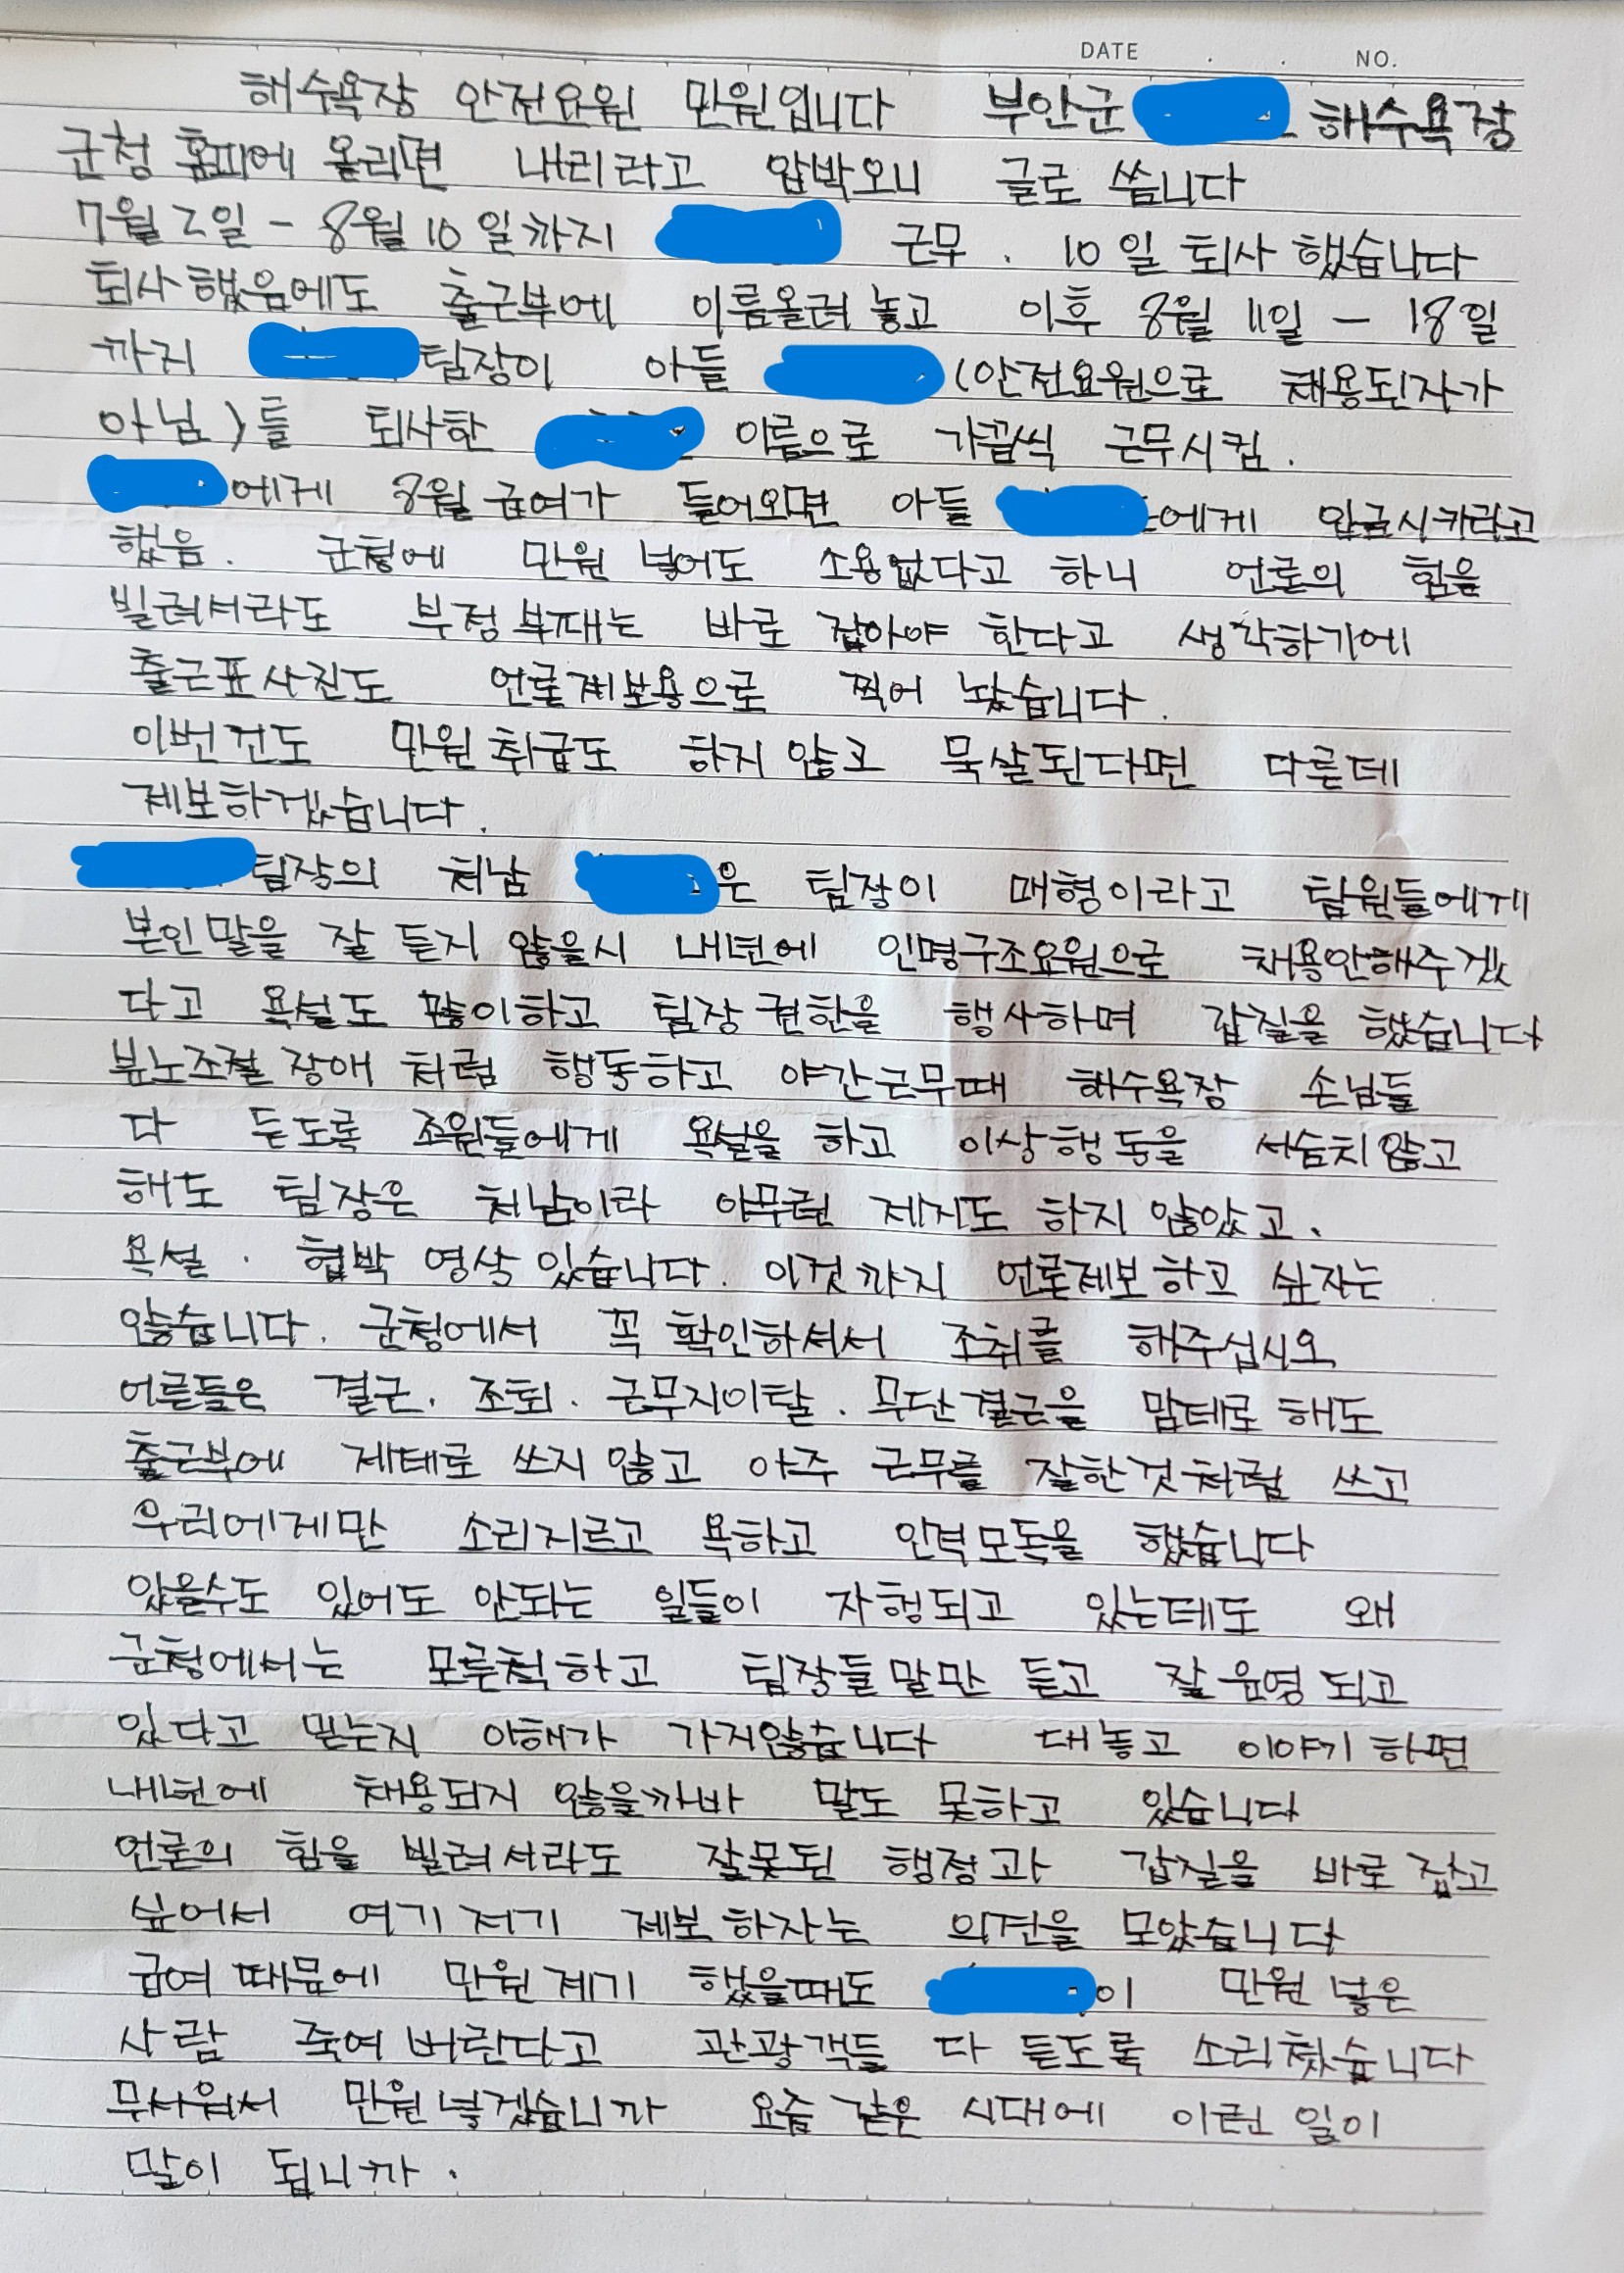 DATE . . NO.
해수욕장 안전요원 민원입니다 부안군 해수욕장
군청 홈피에 올리면 내리라고 압박오니 글로 씁니다
7월 2일 - 8월 10일까지 근무. 10일 퇴사 했습니다
퇴사했음에도 출근부에 이름올려 놓고 이후 8월 11일 - 18일
까지 팀장이 아들 (안전요원으로 채용된자가
아님)를 퇴사한 이름으로 가끔씩 근무시킴.
에게 8월 급여가 들어오면 아들 에게 입금시키라고
했음. 군청에 민원 넣어도 소용없다고 하니 언론의 힘을
빌려서라도 부정부패는 바로 잡아야 한다고 생각하기에
출근표사진도 언론제보용으로 찍어 놨습니다.
이번건도 민원 취급도 하지 않고 묵살된다면 다른데
제보하겠습니다.
팀장의 처남 은 팀장이 매형이라고 팀원들에게
본인말을 잘 듣지 않을시 내년에 인명구조요원으로 채용안해주겠
다고 욕설도 많이하고 팀장 권한을 행사하며 갑질을 했습니다
분노조절 장애 처럼 행동하고 야간근무때 해수욕장 손님들
다 듣도록 조원들에게 욕설을 하고 이상행동을 서슴치않고
해도 팀장은 처남이라 아무런 제지도 하지 않았고.
욕설. 협박 영상 있습니다. 이것까지 언론제보하고 싶자는
않습니다. 군청에서 꼭 확인하셔서 조취를 해주십시오
어른들은 결근. 조퇴. 근무지이탈. 무단결근을 맘테로 해도
출근부에 제태로 쓰지 않고 아주 근무를 잘한것처럼 쓰고
우리에게만 소리지르고 욕하고 인격모독을 했습니다
있을수도 있어도 안되는 일들이 자행되고 있는데도 왜
군청에서는 모른척하고 팀장들말만 듣고 잘 운영 되고
있다고 믿는지 이해가 가지않습니다 대놓고 이야기 하면
내년에 채용되지 않을까바 말도 못하고 있습니다
언론의 힘을 빌려서라도 잘못된 행정과 갑질을 바로 잡고
싶어서 여기저기 제보하자는 의견을 모았습니다
급여 때문에 민원제기 했을때도 이 민원 넣은
사람 죽여 버린다고 관광객들 다 듣도록 소리쳤습니다
무서워서 민원넣겠습니까 요즘 같은 시대에 이런 일이
말이 됩니까.